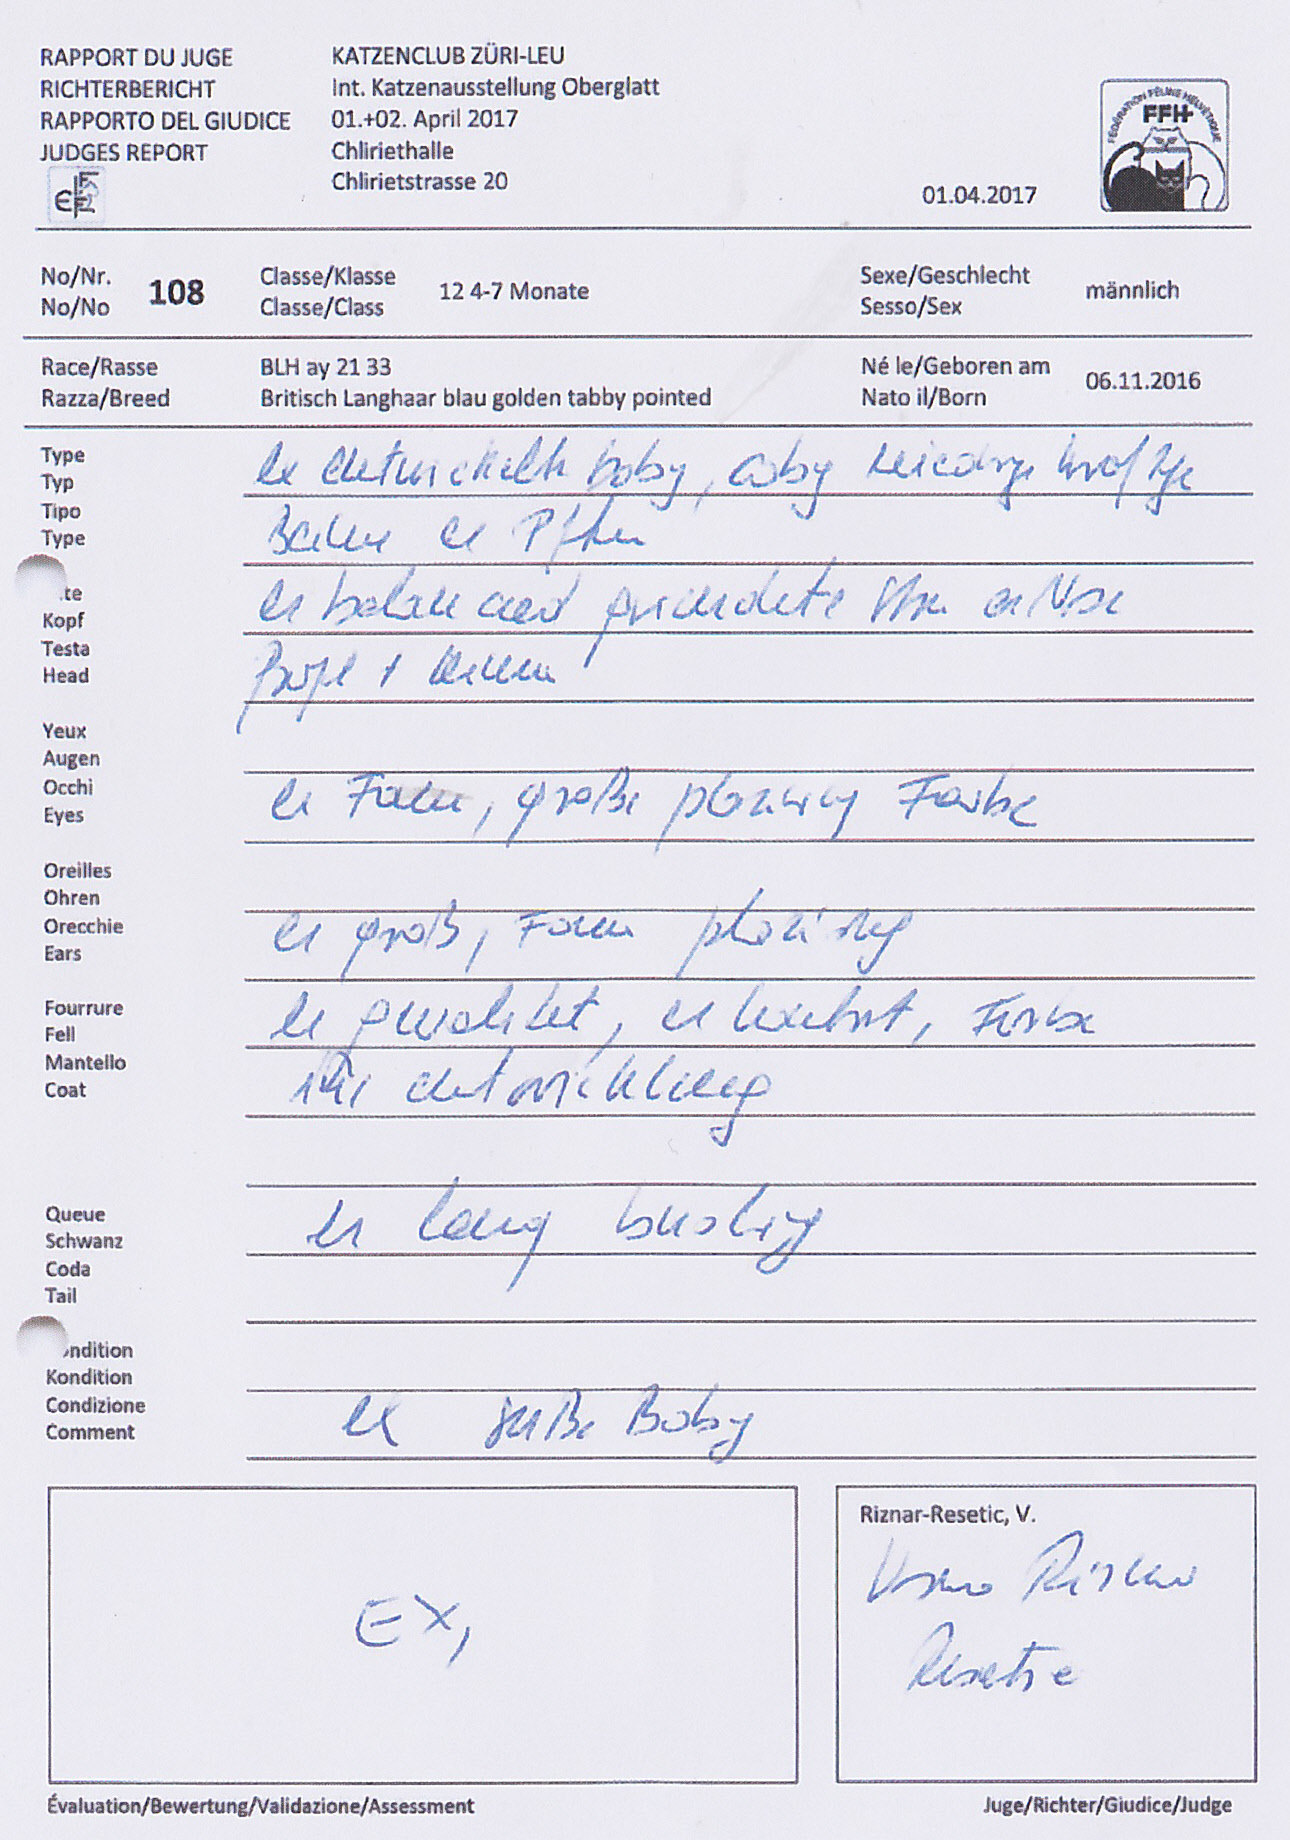 RAPPORT DU JUGE
RICHTERBERICHT
RAPPORTO DEL GIUDICE
JUDGES REPORT
KATZENCLUB ZÜRI-LEU
Int. Katzenausstellung Oberglatt
01.+02. April 2017
Chliriethalle
Chlirietstrasse 20
01.04.2017
FÉDÉRATION FÉLINE HELVÉTIQUE
FFH
No/Nr.
No/No
108
Classe/Klasse
Classe/Class
12 4-7 Monate
Sexe/Geschlecht
Sesso/Sex
männlich
Race/Rasse
Razza/Breed
BLH ay 21 33
Britisch Langhaar blau golden tabby pointed
Né le/Geboren am
Nato il/Born
06.11.2016
Type
Typ
Tipo
Type
ex baby, coby
ex
te
Kopf
Testa
Head
ex
Yeux
Augen
Occhi
Eyes
ex Form, große Farbe
Oreilles
Ohren
Orecchie
Ears
ex groß, Form
Fourrure
Fell
Mantello
Coat
ex ex Farbe
entwicklung
Queue
Schwanz
Coda
Tail
ex lang
ndition
Kondition
Condizione
Comment
ex süße Baby
EX,
Riznar-Resetic, V.
Riznar
Resetic
Évaluation/Bewertung/Validazione/Assessment
Juge/Richter/Giudice/Judge